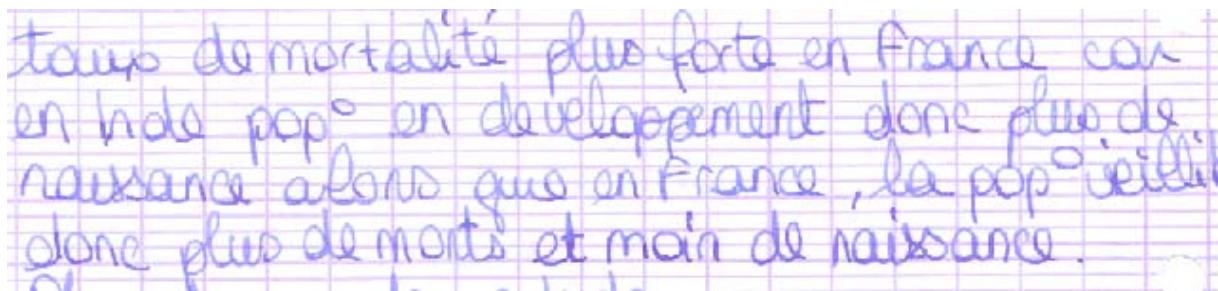 taux de mortalité plus forte en France car
en Inde pop° en developpement donc plus de
naissance alors que en France, la pop° vieillit
donc plus de morts et moin de naissance.